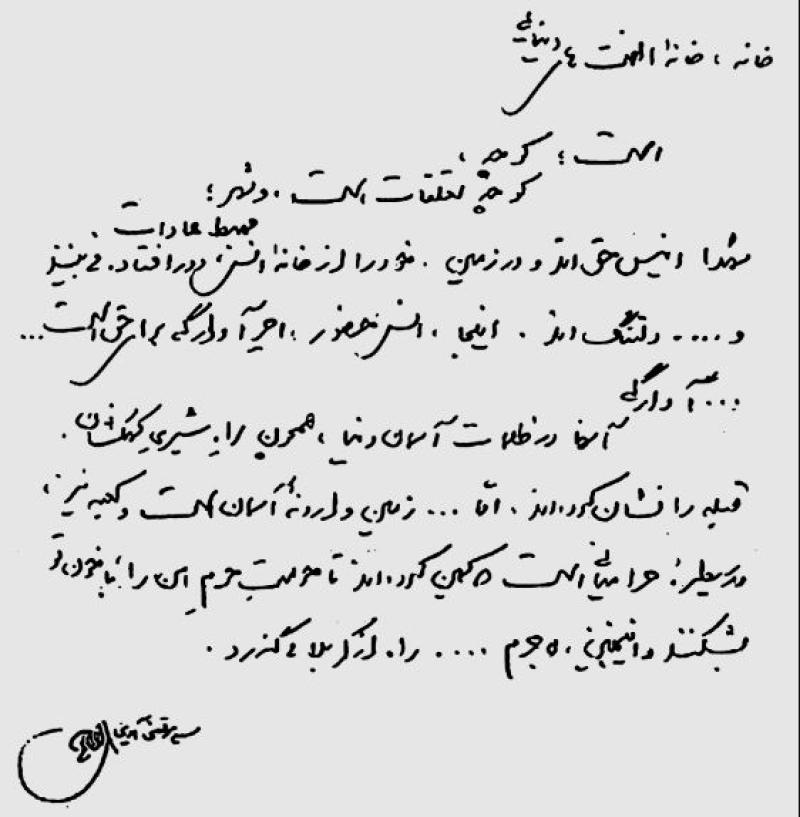 خانه ، خانهٔ الفت های دنیایی
است ؛ کوچه ،
کوچهٔ تعلقات است ، و شهر ؛
محیط عادات .
شهدا انیس حق اند و در زمین . خود را از خانهٔ انس ، دور افتاده می بینند
و .... دلتنگ اند . اینجا ، انس حضور ، اجر آوارگی برای حق است ...
... آوارگی
آنها در ظلمات آسمان دنیا ، همچون راه شیری کهکشان .
قبله را نشان کرده اند . امّا ... زمین وارونهٔ آسمان است و کعبه نیز ،
در سیطرهٔ حرامیانی است که کمین کرده اند تا حرمت حرم امن را با خون تو
بشکنند و اینچنین ، لاجرم .... راه از کربلا می گذرد .
سید مرتضی آوینی